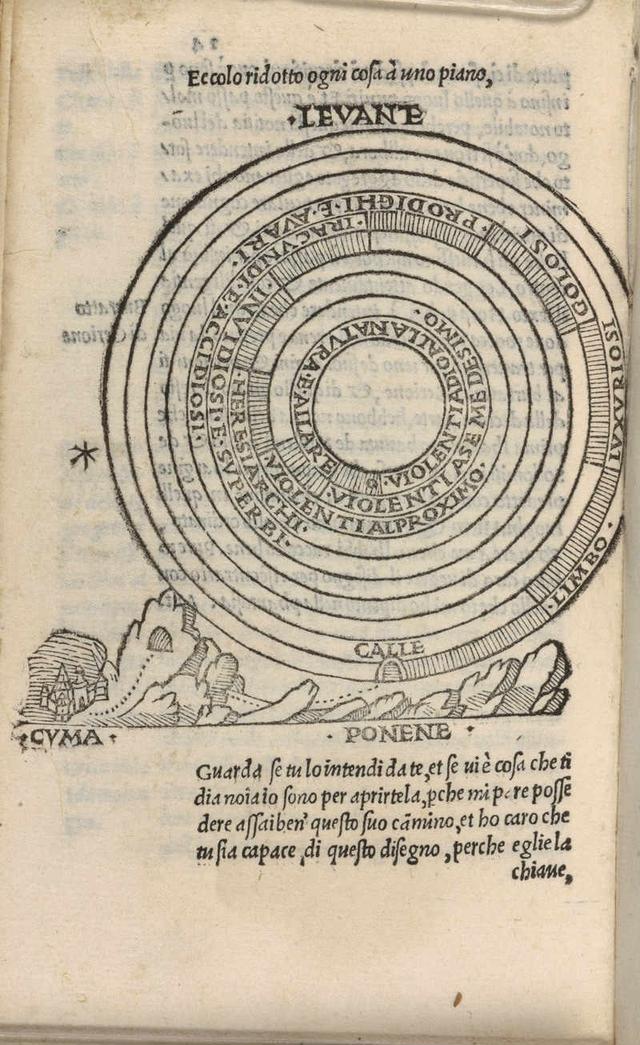 Eccolo ridotto ogni cosa à uno piano,
·LEVANTE
LUXURIOSI
GOLOSI
PRODIGHI·E·AVARI·
IRACVNDI·E·ACCIDIOSI·
INVIDIOSI·E·SVPERBI·
HERESIARCHI·
VIOLENTI AL PROXIMO·
·VIOLENTI A SE MEDESIMO·
·VIOLENTI A DIO ALLA NATVRA·E·ALLARE
·LIMBO·
CALLE
·CVMA·
·PONENE·
Guarda se tu lo intendi da te, et se ui è cosa che ti
dia noia io sono per aprirtela, pche mi pare posse
dere assai ben' questo suo cāmino, et ho caro che
tu sia capace di questo disegno, perche eglie la
chiaue,